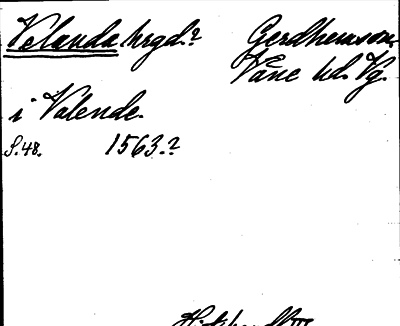 Velanda hrgd.? Gerdhemssn.
Väne hd. Vg.
i Valende.
S. 48. 1563.?